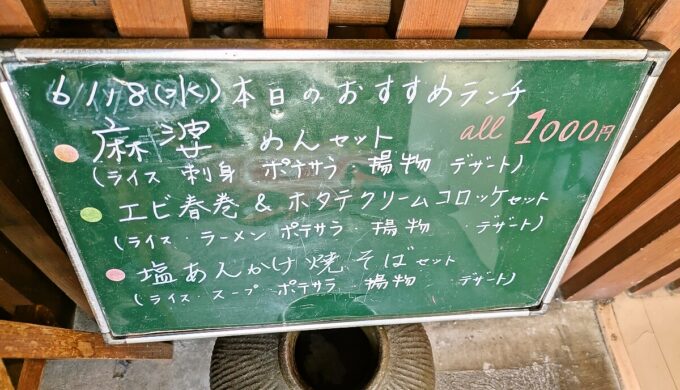 6/18(水) 本日のおすすめランチ
all 1000円
麻婆 めんセット
(ライス 刺身 ポテサラ 揚物 デザート)
エビ春巻 & ホタテクリームコロッケセット
(ライス・ラーメン ポテサラ・揚物・デザート)
塩あんかけ焼そばセット
(ライス・スープ ポテサラ・揚物 デザート)